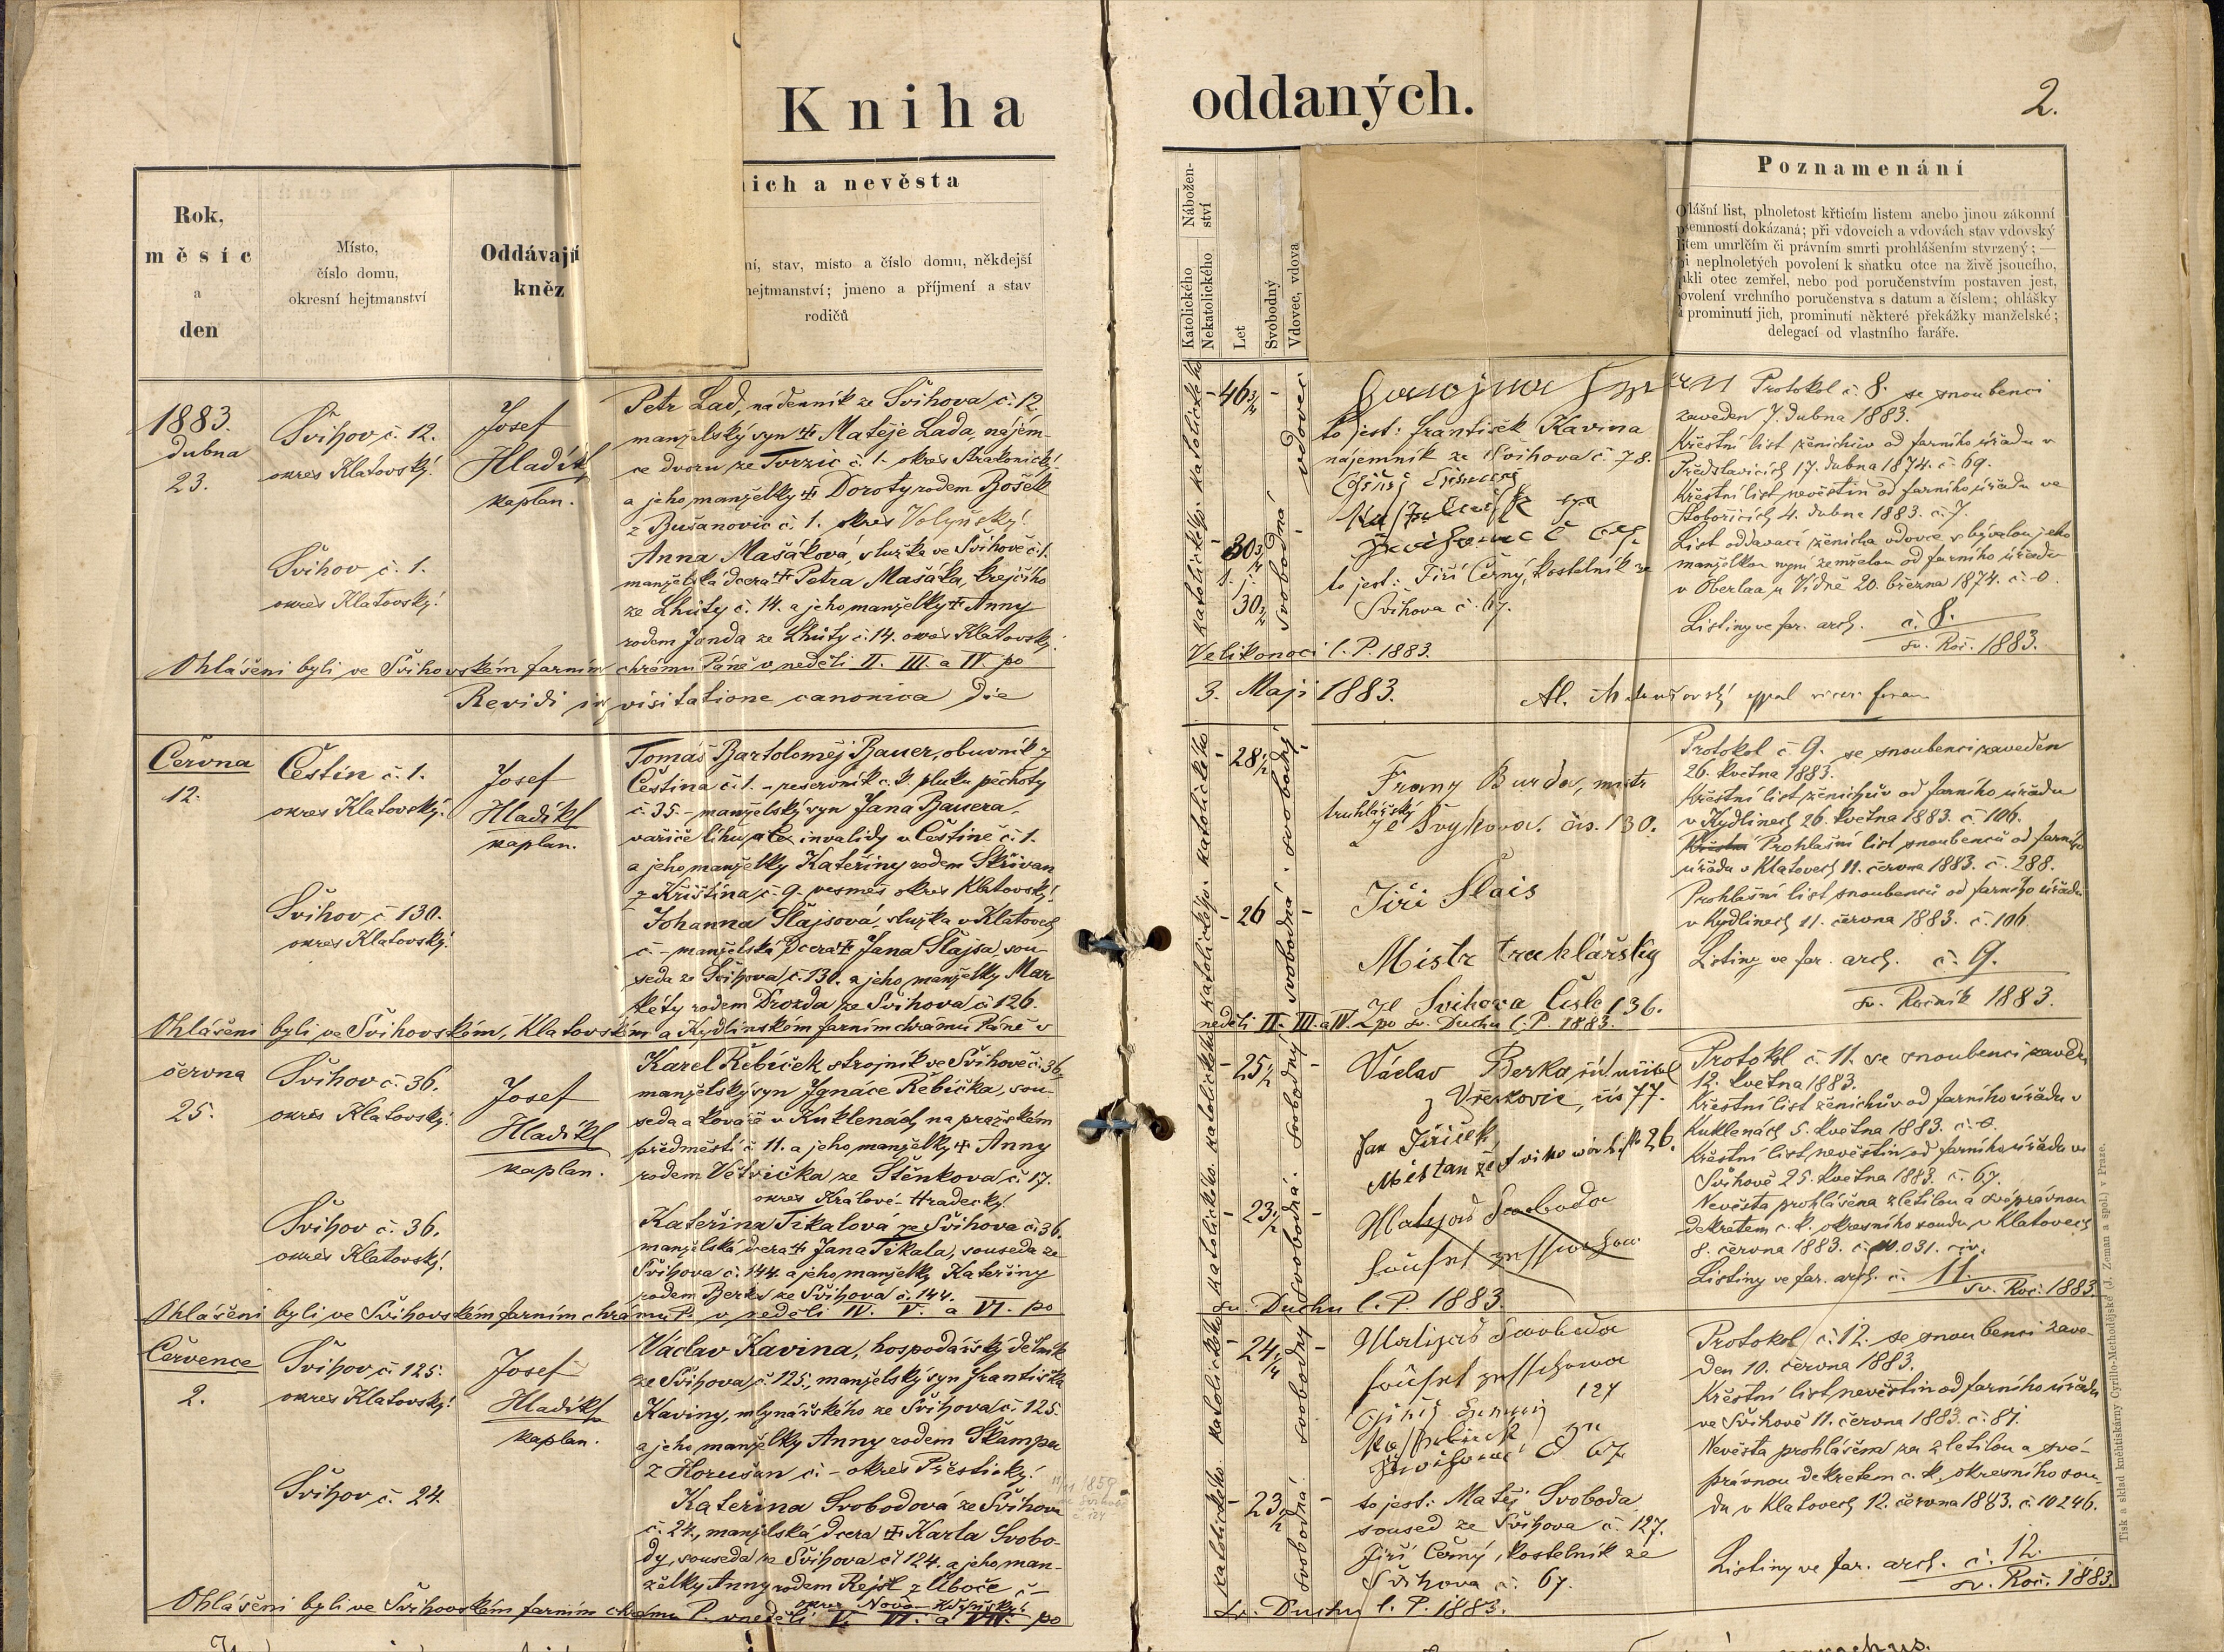 Kniha oddaných.
2.
Rok,
měsíc
a
den
Místo,
číslo domu,
okresní hejtmanství
Oddávající
kněz
ich a nevěsta
ní, stav, místo a číslo domu, někdejší
hejtmanství; jmeno a příjmení a stav
rodičů
Nábožen-
ství
Katolického
Nekatolického
Let
Svobodný
Vdovec, vdova
Poznamenání
lášní list, plnoletost křticím listem anebo jinou zákonní
semností dokázaná; při vdovcích a vdovách stav vdovský
tem umrlčím či právním smrti prohlášením stvrzený; —
i neplnoletých povolení k sňatku otce na živě jsoucího,
kli otec zemřel, nebo pod poručenstvím postaven jest,
ovolení vrchního poručenstva s datum a číslem; ohlášky
prominutí jich, prominutí některé překážky manželské;
delegací od vlastního faráře.
1883.
dubna
23.
Švihov č. 12.
okres Klatovský.
Josef
Hladík
kaplan.
Petr Lad, nádenník ze Švihova č. 12
manželský syn † Matěje Lada, nájem-
ce dvoru ze Tvrzic č. 1. okres Strakonický
a jeho manželky † Doroty rodem Bošek
z Bušanovic č. 1. okres Volyňský.
Švihov č. 1.
okres Klatovský.
Anna Mašáková, služka ve Švihově č. 1.
manželská dcera † Petra Mašáka, krejčího
ze Lhůty č. 14. a jeho manželky † Anny
rodem Janda ze Lhůty č. 14. okres Klatovský.
katolického. katolického.
46 3/4
vdovec
30 3/4
t. j.
30 3/4
svobodná
to jest: František Kavina
nájemník ze Švihova č. 78.
to jest: Jiří Černý, kostelník ze
Švihova č. 67.
Protokol č. 8. se snoubenci
zaveden 7. dubna 1883.
Křestní list ženichův od farního úřadu v
Předslavicích 17. dubna 1874. č. 69.
Křestní list nevěstin od farního úřadu ve
4. dubna 1883. č. 7.
List oddavací ženicha vdovce s bývalou jeho
manželkou nyní zemřelou od farního úřadu
v Oberlaa u Vídně 20. března 1874. č. 0.
Listiny ve far. arch. č. 8.
sv. Roč. 1883.
Ohlášeni byli ve Švihovském farním chrámu Páně v neděli II. III. a IV. po
Velikonoci l. P. 1883.
Revidi in visitatione canonica die
3. Maji 1883.
Června
12.
Čestín č. 1.
okres Klatovský.
Josef
Hladík
kaplan.
Tomáš Bartoloměj Bauer, obuvník z
Čestína č. 1. - reservník c. k. pluku pěchoty
č. 35. - manželský syn Jana Bauera,
vařiče líhu a invalidy v Čestíně č. 1.
a jeho manželky Kateřiny rodem Skřivan
z Křištína č. 9. vesměs okres Klatovský.
Švihov č. 130.
okres Klatovský.
Johanna Šlajsová, služka v Klatovech
č. - manželská dcera † Jana Šlajsa, sou-
seda ze Švihova č. 130. a jeho manželky Mar-
kéty rodem Drozda ze Švihova č. 126.
katolického. katolického.
28 1/2
svobodný.
26
svobodná
Franz Burda, mistr
truhlářský
ze Švyhova. čis. 130.
Jiří Slais
Mistr truhlářský
Ze Svihova Čislo 136.
Protokol č. 9. se snoubenci zaveden
26. května 1883.
Křestní list ženichův od farního úřadu
v Kydlinech 26. května 1883. č. 106.
Prohlašní list snoubenců od farního
úřadu v Klatovech 11. června 1883. č. 288.
Prohlašní list snoubenců od farního úřadu
v Kydlinech 11. června 1883. č. 106.
Listiny ve far. arch. č. 9.
sv. Ročník 1883.
Ohlášeni byli ve Švihovském, Klatovském a Kydlinském farním chrámu Páně v
neděli II. III. a IV. po sv. Duchu l. P. 1883.
června
25.
Švihov č. 36.
okres Klatovský.
Josef
Hladík
kaplan.
Karel Řebíček strojník ve Švihově č. 36,
manželský syn Ignáce Řebíčka, sou-
seda a kováře v Kuklenách, na pražském
předměstí č. 11. a jeho manželky † Anny
rodem Větvička ze Stěnkova č. 17.
okres Králové-Hradecký.
Švihov č. 36.
okres Klatovský.
Kateřina Tikalová ze Švihova č. 36.
manželská dcera † Jana Tikala, souseda ze
Švihova č. 144. a jeho manželky Kateřiny
rodem Berka ze Švihova č. 144.
katolického. katolického
25 1/2
svobodný
23 1/2
svobodná.
Václav Berka, říd. učitel
z Vřeskovic, čís 77.
Jan Jiříček
Měštan ze Svihowa č. 26.
Matyáš Svoboda
Protokol č. 11. se snoubenci zaveden
12. května 1883.
Křestní list ženichův od farního úřadu v
Kuklenách 5. května 1883. č. 0.
Křestní list nevěstin od farního úřadu ve
Švihově 25. května 1883. č. 67.
Nevěsta prohlášena zletilou a svéprávnou
dekretem c. k. okresního soudu v Klatovech
8. června 1883. č. 10.031. civ.
Listiny ve far. arch. č. 11.
sv. Roč. 1883.
Ohlášeni byli ve Švihovském farním chrámu P. v neděli IV. V. a VI. po
sv. Duchu l. P. 1883.
Července
2.
Švihov č. 125.
okres Klatovský.
Josef
Hladík
kaplan.
Václav Kavina, hospodářský dělník
ze Švihova č. 125., manželský syn Františka
Kaviny, mlynářského ze Švihova č. 125.
a jeho manželky Anny rodem Škampa
z Horušan č. - okres Přestický.
Švihov č. 24.
Kateřina Svobodová ze Švihova
č. 24., manželská dcera † Karla Svobo-
dy, souseda ze Švihova č. 124. a jeho man-
želky Anny rodem Rejšl z Úboče č -
okres Novo-
katolického. katolického
24 1/4
svobodný
23 1/2
svobodná.
Matyáš Svoboda
127
67
to jest: Matěj Svoboda
soused ze Švihova č. 127.
Jiří Černý, kostelník ze
Švihova č. 67.
Protokol č. 12. se snoubenci zave-
den 10. června 1883.
Křestní list nevěstin od farního úřadu
ve Švihově 11. června 1883. č. 81.
Nevěsta prohlášena za zletilou a své-
právnou dekretem c. k. okresního sou-
du v Klatovech 12. června 1883. č. 10246.
Listiny ve far. arch. č. 12.
sv. Roč. 1883.
Ohlášeni byli ve Švihovském farním chrámu P. v neděli V. VI. a VII. po
sv. Duchu l. P. 1883.
Tisk a sklad knihtiskárny Cyrillo-Methodějské (J. Zeman a spol.) v Praze.